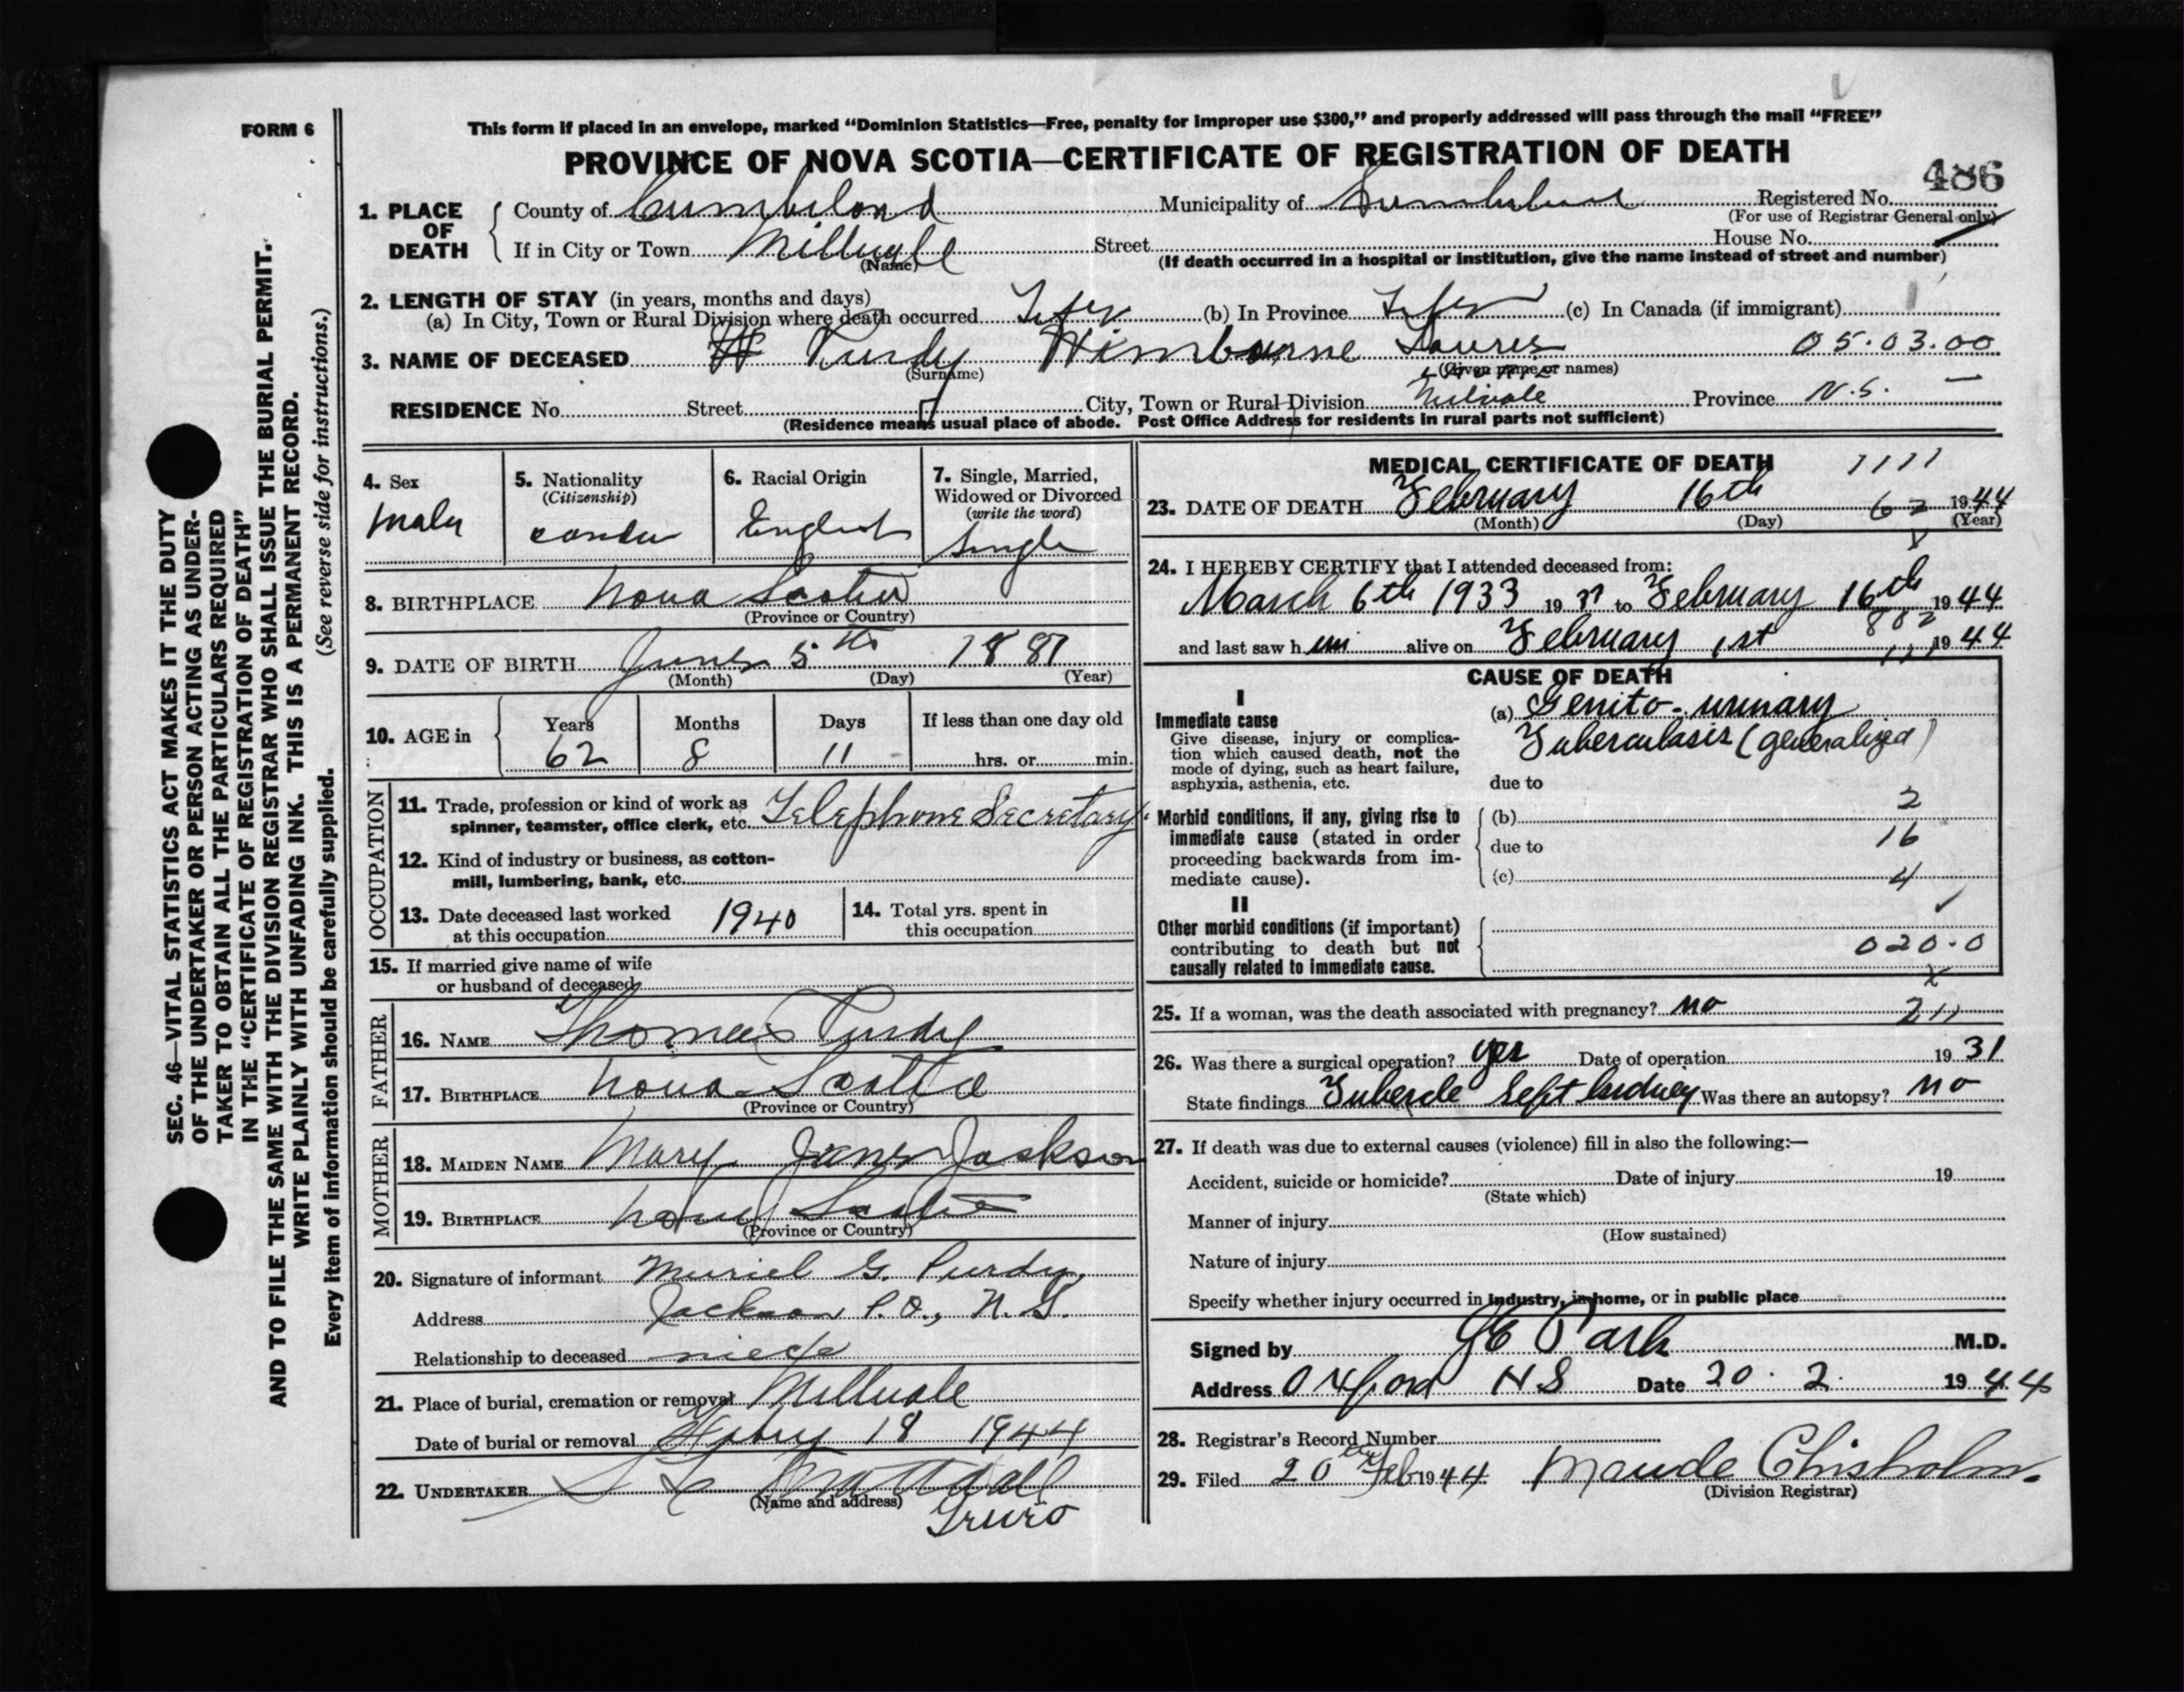 FORM 6
This form if placed in an envelope, marked “Dominion Statistics—Free, penalty for improper use $300,” and properly addressed will pass through the mail “FREE”
PROVINCE OF NOVA SCOTIA—CERTIFICATE OF REGISTRATION OF DEATH
486
1. PLACE OF DEATH
County of Cumberland Municipality of Registered No.
(For use of Registrar General only)
If in City or Town Millvale Street House No.
(Name) (If death occurred in a hospital or institution, give the name instead of street and number)
2. LENGTH OF STAY (in years, months and days)
(a) In City, Town or Rural Division where death occurred Life (b) In Province Life (c) In Canada (if immigrant)
3. NAME OF DECEASED Purdy Wimburne 05.03.00
(Surname) (Given name or names)
RESIDENCE No. Street City, Town or Rural Division Millvale Province N.S.
(Residence means usual place of abode. Post Office Address for residents in rural parts not sufficient)
SEC. 46—VITAL STATISTICS ACT MAKES IT THE DUTY
OF THE UNDERTAKER OR PERSON ACTING AS UNDER-
TAKER TO OBTAIN ALL THE PARTICULARS REQUIRED
IN THE “CERTIFICATE OF REGISTRATION OF DEATH”
AND TO FILE THE SAME WITH THE DIVISION REGISTRAR WHO SHALL ISSUE THE BURIAL PERMIT.
WRITE PLAINLY WITH UNFADING INK. THIS IS A PERMANENT RECORD.
Every item of information should be carefully supplied. (See reverse side for instructions.)
4. Sex
Male
5. Nationality
(Citizenship)
6. Racial Origin
English
7. Single, Married,
Widowed or Divorced
(write the word)
Single
8. BIRTHPLACE Nova Scotia
(Province or Country)
9. DATE OF BIRTH June 5th 1881
(Month) (Day) (Year)
10. AGE in
Years Months Days If less than one day old
62 8 11 hrs. or min.
OCCUPATION
11. Trade, profession or kind of work as
spinner, teamster, office clerk, etc. Telephone Secretary
12. Kind of industry or business, as cotton-
mill, lumbering, bank, etc.
13. Date deceased last worked
at this occupation 1940
14. Total yrs. spent in
this occupation
15. If married give name of wife
or husband of deceased
FATHER
16. NAME Thomas Purdy
17. BIRTHPLACE Nova Scotia
(Province or Country)
MOTHER
18. MAIDEN NAME Mary Jane Jackson
19. BIRTHPLACE Nova Scotia
(Province or Country)
20. Signature of informant Muriel G. Purdy
Address Jackson P.O., N.S.
Relationship to deceased niece
21. Place of burial, cremation or removal Millvale
Date of burial or removal 18 1944
22. UNDERTAKER
(Name and address)
Truro
MEDICAL CERTIFICATE OF DEATH 1111
23. DATE OF DEATH February 16th 62 1944
(Month) (Day) (Year)
24. I HEREBY CERTIFY that I attended deceased from:
March 6th 1933 19 to February 16th 1944
802
and last saw him alive on February 1st 1944
CAUSE OF DEATH
I
Immediate cause
Give disease, injury or complica-
tion which caused death, not the
mode of dying, such as heart failure,
asphyxia, asthenia, etc.
(a) Genito-urinary
Tuberculosis (generalized)
due to
2
Morbid conditions, if any, giving rise to
immediate cause (stated in order
proceeding backwards from im-
mediate cause).
(b)
due to 16
(c) 4
II
Other morbid conditions (if important)
contributing to death but not
causally related to immediate cause.
020.0
25. If a woman, was the death associated with pregnancy? no
211
26. Was there a surgical operation? yes Date of operation 1931
State findings Tubercle Left kidney Was there an autopsy? no
27. If death was due to external causes (violence) fill in also the following:—
Accident, suicide or homicide? Date of injury 19
(State which)
Manner of injury
(How sustained)
Nature of injury
Specify whether injury occurred in industry, in home, or in public place
Signed by M.D.
Address Oxford NS Date 20. 2. 1944
28. Registrar's Record Number
29. Filed 20 Feb 1944 Maude Chisholm
(Division Registrar)